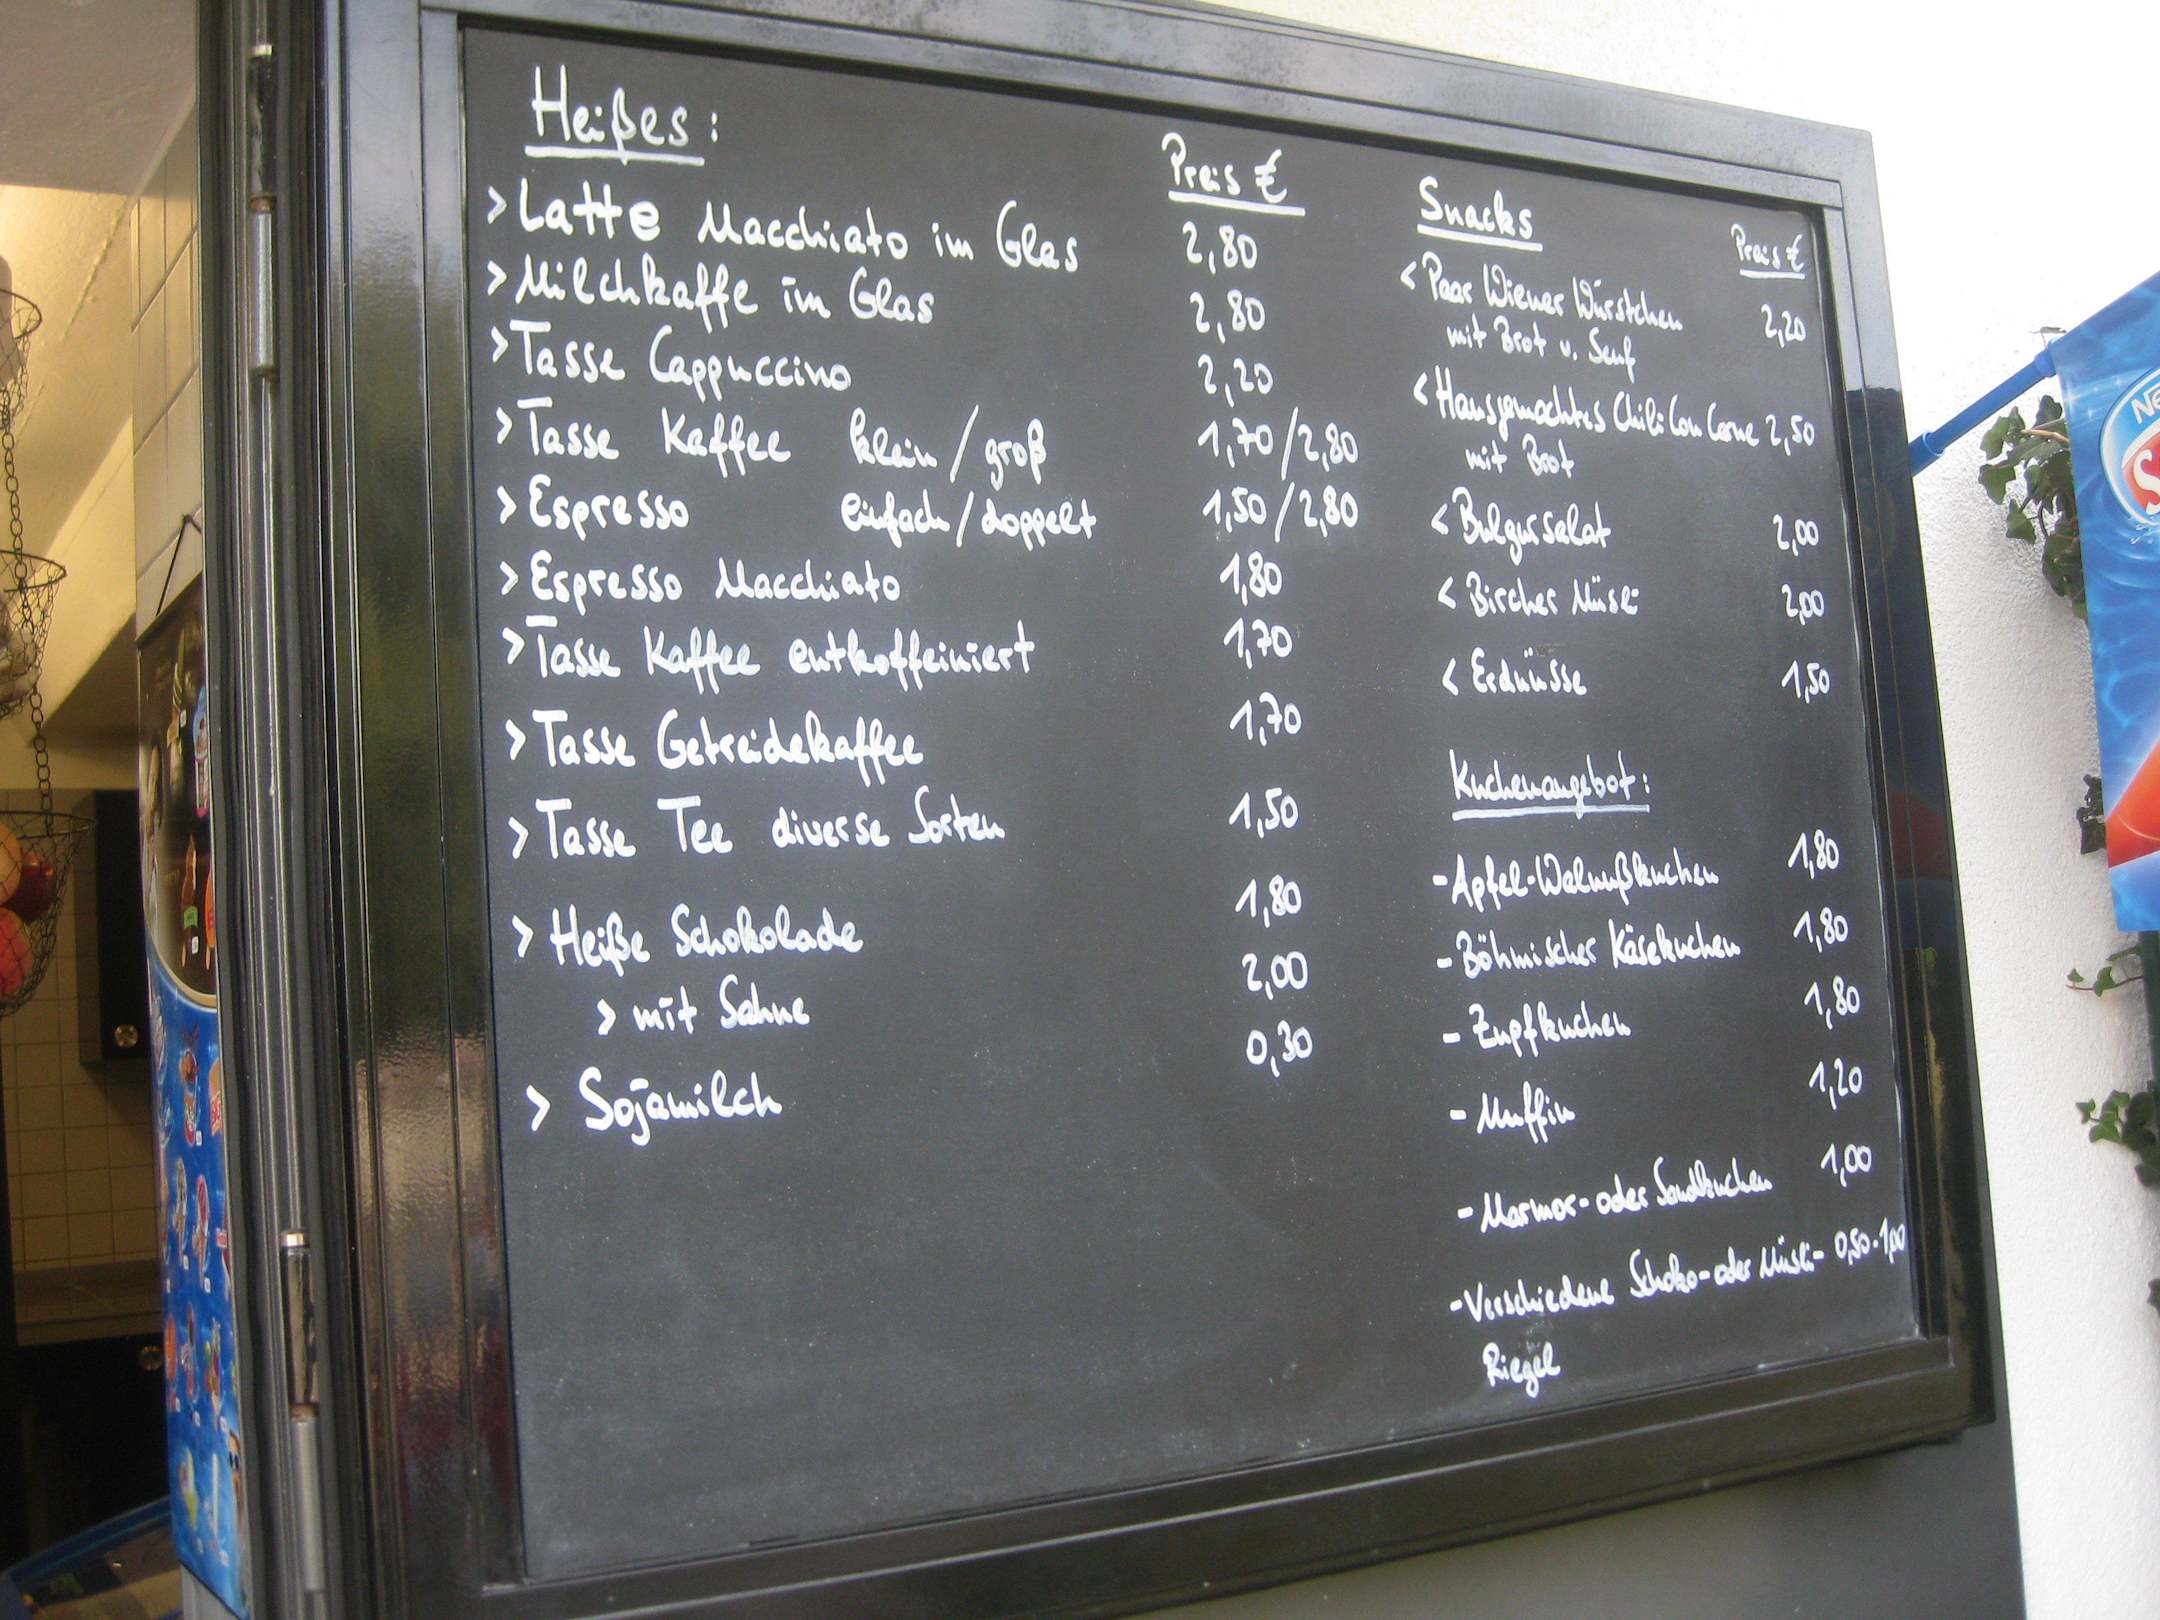 Heißes:
Preis €
> Latte Macchiato im Glas 2,80
> Milchkaffe im Glas 2,80
> Tasse Cappuccino 2,20
> Tasse Kaffee klein / groß 1,70 / 2,80
> Espresso einfach / doppelt 1,50 / 2,80
> Espresso Macchiato 1,80
> Tasse Kaffee entkoffeiniert 1,70
> Tasse Getreidekaffee 1,70
> Tasse Tee diverse Sorten 1,50
> Heiße Schokolade 1,80
> mit Sahne 2,00
> Sojamilch 0,30
Snacks
Preis €
< Paar Wiener Würstchen 2,20
mit Brot u. Senf
< Hausgemachtes Chili Con Carne 2,50
mit Brot
< Bulgursalat 2,00
< Bircher Müsli 2,00
< Erdnüsse 1,50
Kuchenangebot:
- Apfel-Walnußkuchen 1,80
- Böhmischer Käsekuchen 1,80
- Zupfkuchen 1,80
- Muffin 1,20
- Marmor- oder Sandkuchen 1,00
- Verschiedene Schoko- oder Müsli- 0,50-1,00
Riegel